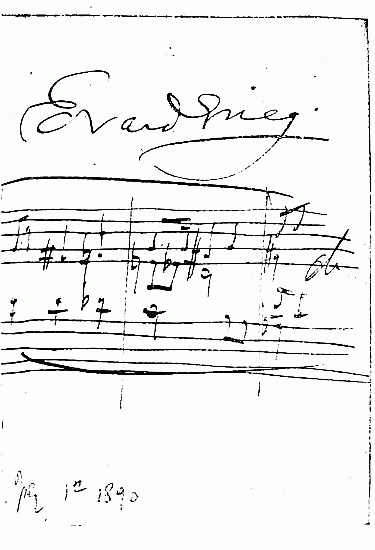 Edvard Grieg.
1st 1890